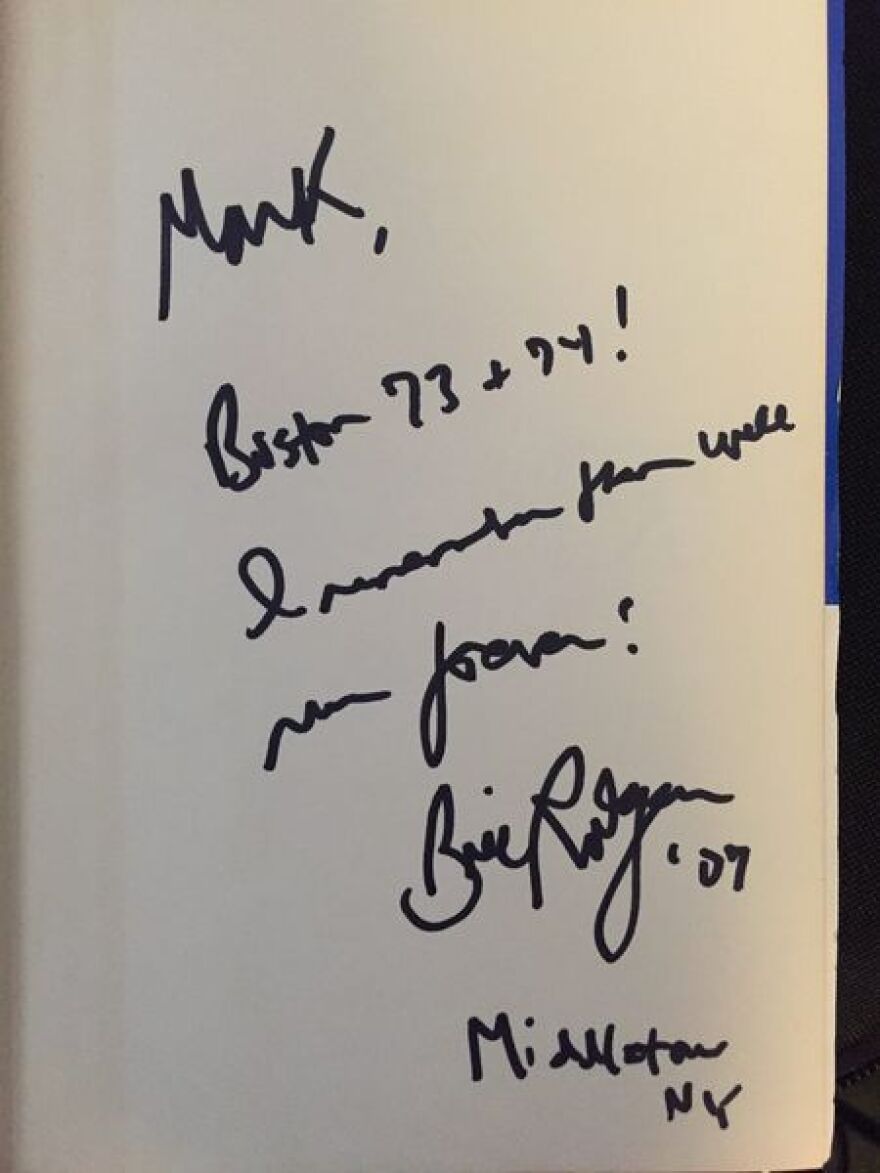 Mark,
Boston 73 + 74!
I remember them well
run forever!
Bill Rodgers '07
Middletown
NY